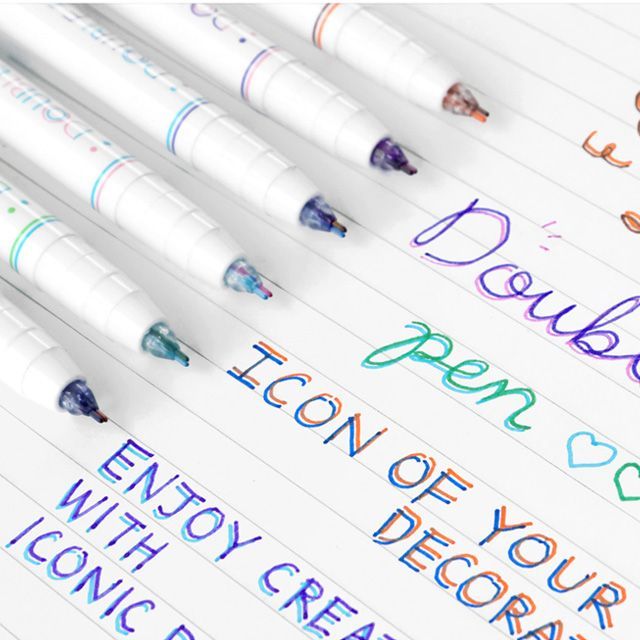 Doub
pen ♡♡
ICON OF YOUR
DECORA
ENJOY CREA
WITH
ICONIC